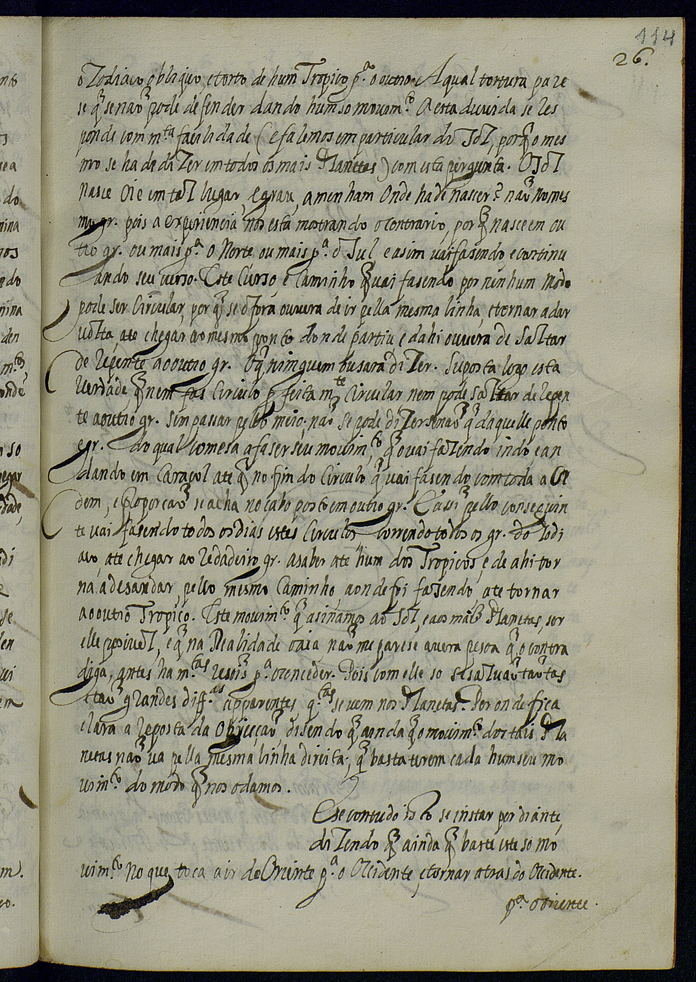 114
26.
o Zodiaco obliquo, e torto de hum Tropico p.ª o outro. A qual tortura pare
se q̃ se naõ pode defender dando hum so movim.to A esta duvida se res
ponde com m.ta facilidade (e falemos em particular do Sol, porq̃ o mes
mo se ha da diZer em todos os mais Planetas) com esta pergunta. O Sol
nasce Oie em tal lugar e grau, amenham Onde ha de nascer? naõ no mes
mo gr. pois a experiencia nos esta mostrando o contrario, porq̃ nasce em ou
tro gr. ou mais p.ª o Norte ou mais p.ª o Sul e asim vai fasendo e continu
ando seu curso. Este Curso e Caminho q̃ vai fasendo por ninhum modo
pode ser Circular, porq̃ se o fora ouvera de ir pella mesma linha, e tornar a dar
volta, ate chegar ao mesmo ponto donde partiu e dahi ouvera de Saltar
de repente ao outro gr. O q̃ ninguem ousara diZer. Suposta logo esta
verdade q̃ nem fas Circulo perfeitam.te Circular nem pode saltar de repen
te a outro gr. sim passar pello meio, naõ se pode diZer senaõ q̃ daquelle ponto
e gr. do qual comesa a faser seu movim.to, q̃ o vai faZendo indo e an
dando em Caracol ate q̃ no fim do Circulo q̃ vai fasendo com toda a Or
dem, e Proporçaõ se acha no cabo posto em outro gr. E assi pello conseguin
te vai fasendo todos os dias estes Circulos correndo todos os gr. do Zodi
aco ate chegar ao derradeiro gr. a saber ate hum dos Tropicos, e de ahi tor
na a desandar, pello mesmo Caminho aonde foi faZendo, ate tornar
ao outro Tropico. Este movim.to q̃ asinamos ao Sol, e aos mais Planetas, ser
elle posivel, e q̃ na Realidade o aia naõ me parese avera pesoa q̃ o contra
diga, antes ha m.tas resois p.ª o conceder. Pois com elle so se salvaõ tantas
e taõ grandes diff.as apparentes q.tas se vem nos Planetas. Por onde fica
clara a reposta da Obieçaõ disendo q̃ ainda q̃ o movim.to dos tais Pla
netas naõ va pella mesma linha direita, q̃ basta terem cada hum seu mo
vim.to do modo q̃ nos o damos.
E se contudo isto se instar por diante,
diZendo q̃ ainda q̃ baste este so mo
vim.to No que toca a ir do Oriente p.ª o Occidente, e tornar atras do Occidente.
p.ª o Oriente.